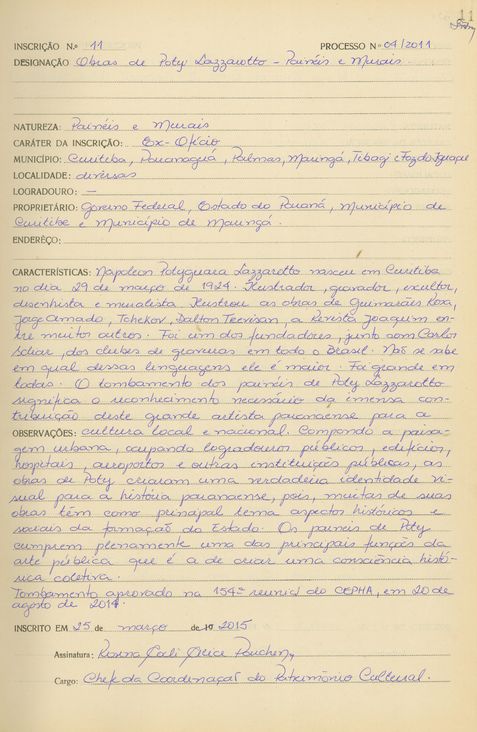 11
INSCRIÇÃO N.º 11 PROCESSO Nº 04/2011
DESIGNAÇÃO Obras de Poty Lazzarotto - Painéis e Murais.
NATUREZA: Painéis e Murais
CARÁTER DA INSCRIÇÃO: Ex-Ofício
MUNICÍPIO: Curitiba, Paranaguá, Palmas, Maringá, Tibagi e Foz do Iguaçu
LOCALIDADE: diversas
LOGRADOURO: —
PROPRIETÁRIO: Governo Federal, Estado do Paraná, Município de
Curitiba e Município de Maringá.
ENDERÊÇO:
CARACTERÍSTICAS: Napoleon Potyguara Lazzarotto nasceu em Curitiba
no dia 29 de março de 1924. Ilustrador, gravador, escultor,
desenhista e muralista. Ilustrou as obras de Guimarães Rosa,
Jorge Amado, Tchekov, Dalton Trevisan, a Revista Joaquim en-
tre muitos outros. Foi um dos fundadores, junto com Carlos
Scliar, dos clubes de gravuras em todo o Brasil. Não se sabe
em qual dessas linguagens ele é maior. Foi grande em
todas. O tombamento dos painéis de Poty Lazzarotto
significa o reconhecimento necessário da imensa con-
tribuição deste grande artista paranaense para a
OBSERVAÇÕES: cultura local e nacional. Compondo a paisa-
gem urbana, ocupando logradouros públicos, edifícios,
hospitais, aeroportos e outras instituições públicas, as
obras de Poty criaram uma verdadeira identidade vi-
sual para a história paranaense, pois, muitas de suas
obras têm como principal tema aspectos históricos e
sociais da formação do Estado. Os painéis de Poty
cumprem plenamente uma das principais funções da
arte pública que é a de criar uma consciência histó-
rica coletiva.
Tombamento aprovado na 154ª reunião do CEPHA, em 20 de
agosto de 2014.
INSCRITO EM 25 de março de 19 2015
Assinatura: Rosina
Cargo: Chefe da Coordenação do Patrimônio Cultural.